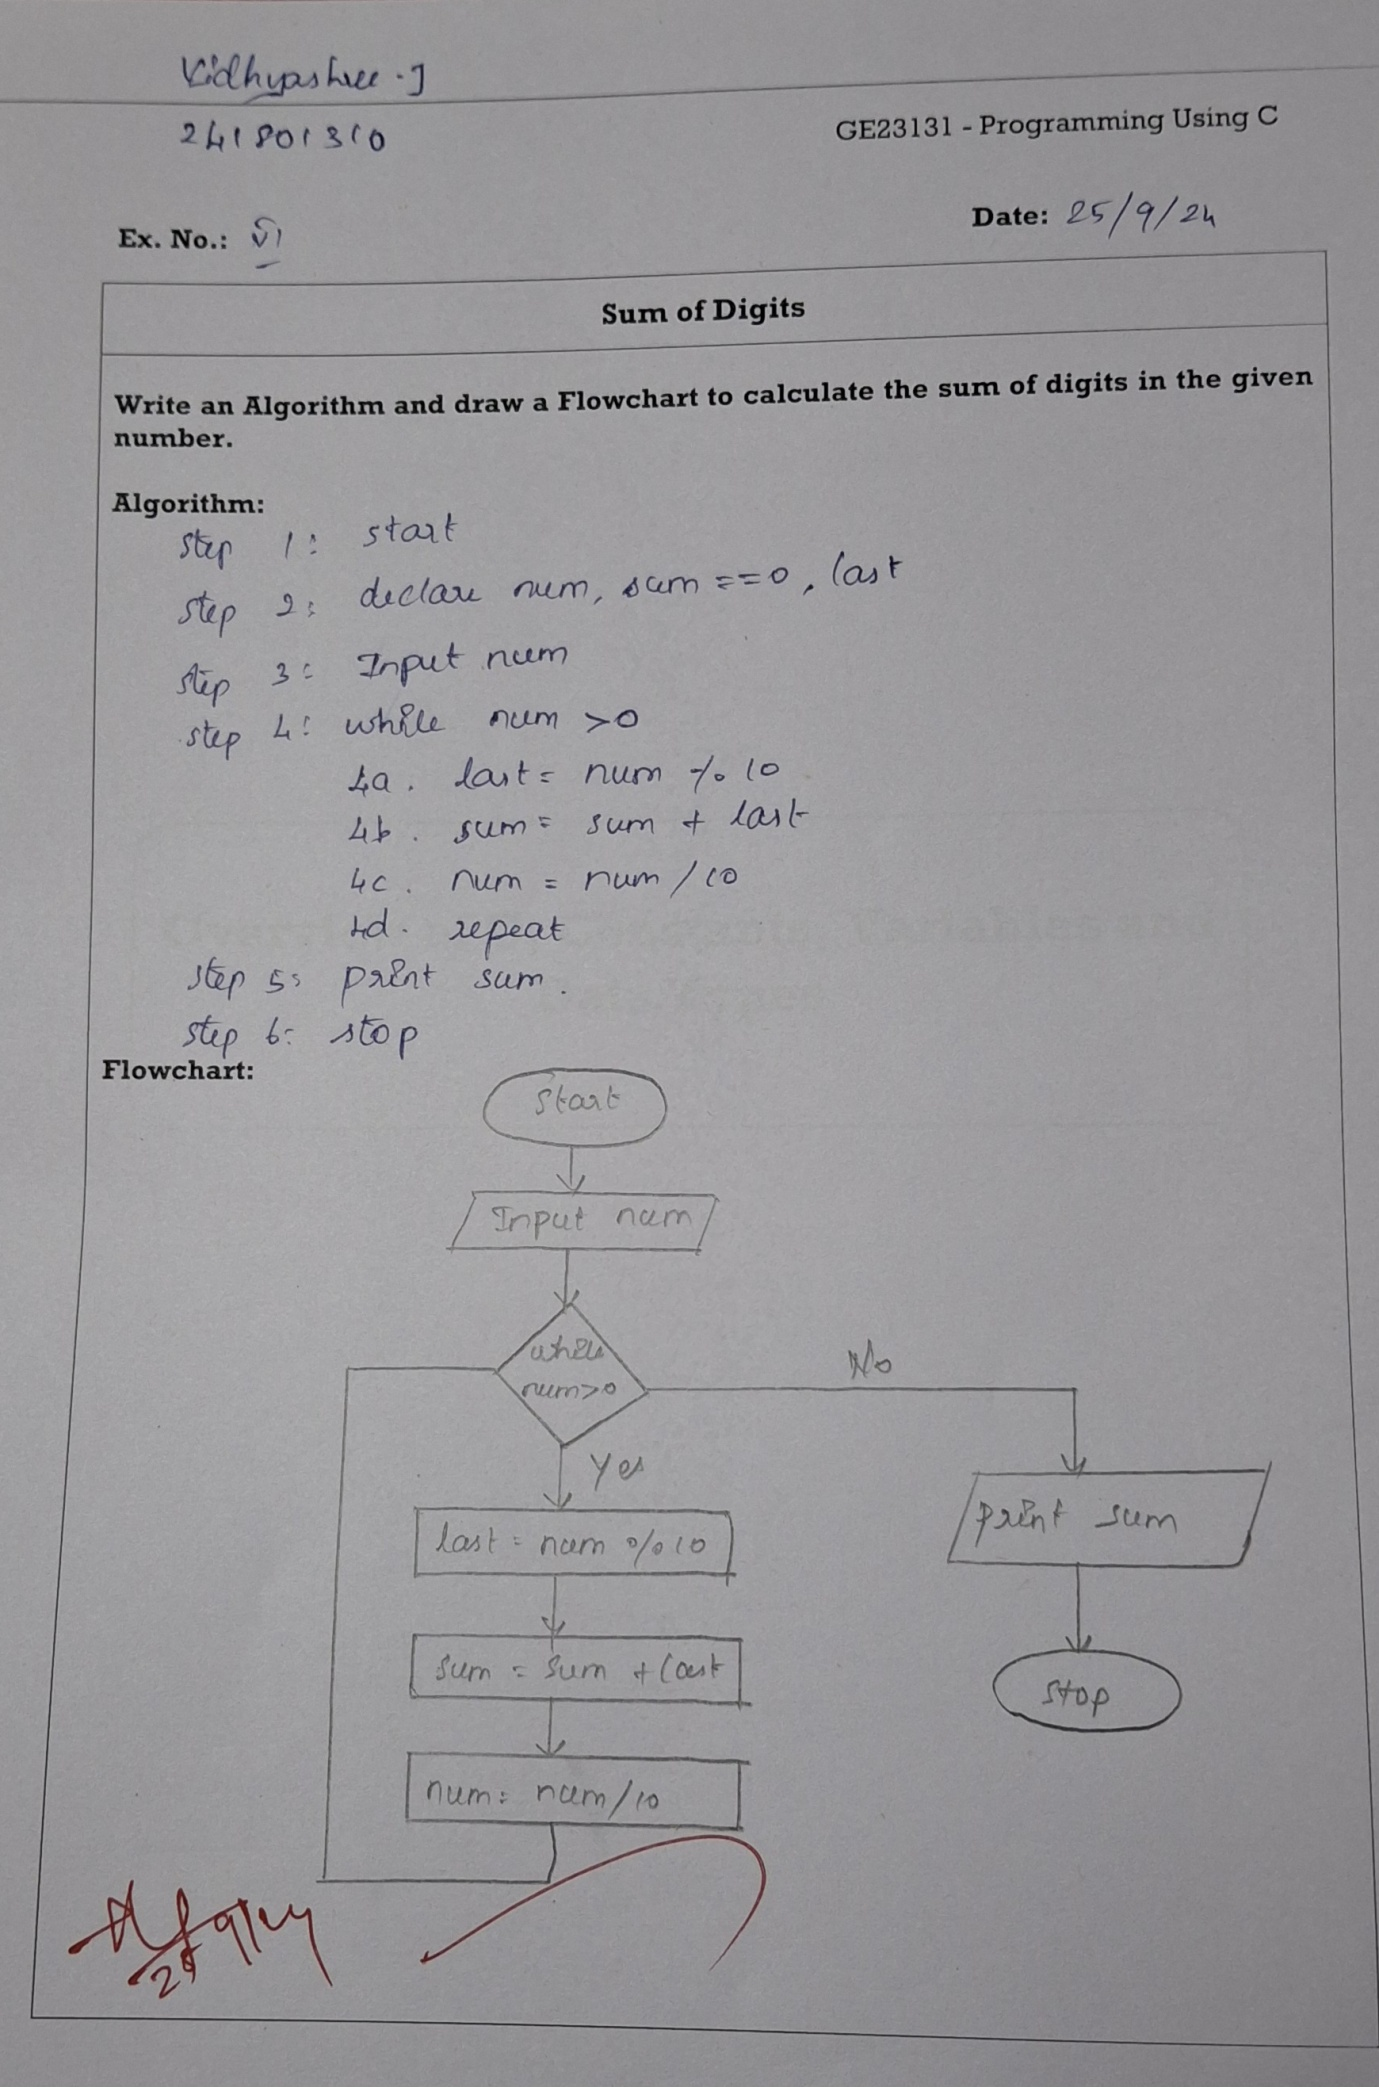 Vidhyashree .J
241801310
GE23131 - Programming Using C
Ex. No.: vi
Date: 25/9/24
Sum of Digits
Write an Algorithm and draw a Flowchart to calculate the sum of digits in the given
number.
Algorithm:
step 1: start
step 2: declare num, sum ==0, last
step 3: Input num
step 4: while num >0
4a. last = num % 10
4b. sum = sum + last
4c. num = num / 10
4d. repeat
step 5: print sum.
step 6: stop
Flowchart:
start
Input num
while
num>0
No
Yes
last = num % 10
print sum
sum = sum + last
stop
num = num/10